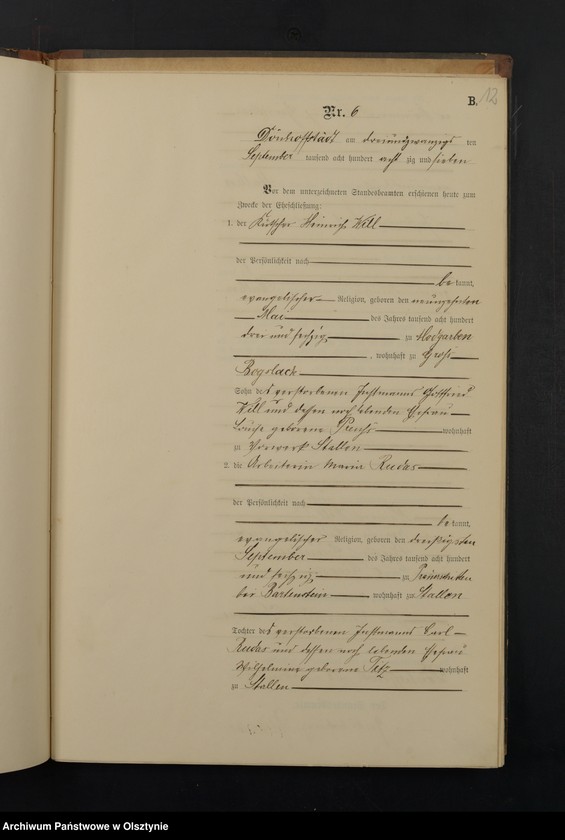 B. 12
Nr. 6
Dönhoffstädt am dreiundzwanzigs ten
September tausend acht hundert acht zig und sieben
Vor dem unterzeichneten Standesbeamten erschienen heute zum
Zwecke der Eheschließung:
1. der Kutscher Heinrich Will
der Persönlichkeit nach
be kannt,
evangelischer Religion, geboren den neunzehnten
Mai des Jahres tausend acht hundert
drei und sechzig zu Modgarben
, wohnhaft zu Groß
Bogslack
Sohn des verstorbenen Instmanns Gottfried
Will und dessen noch lebenden Ehefrau
Louise geborene Preuß wohnhaft
zu Vorwerk Stallen
2. die Arbeiterin Maria Rudas
der Persönlichkeit nach
be kannt,
evangelischer Religion, geboren den dreißigsten
September des Jahres tausend acht hundert
und sechzig zu
bei Bartenstein wohnhaft zu Stallen
Tochter des verstorbenen Instmanns Carl
Rudas und dessen noch lebenden Ehefrau
Wilhelmine geborene Tetz wohnhaft
zu Stallen
Archiwum Państwowe w Olsztynie